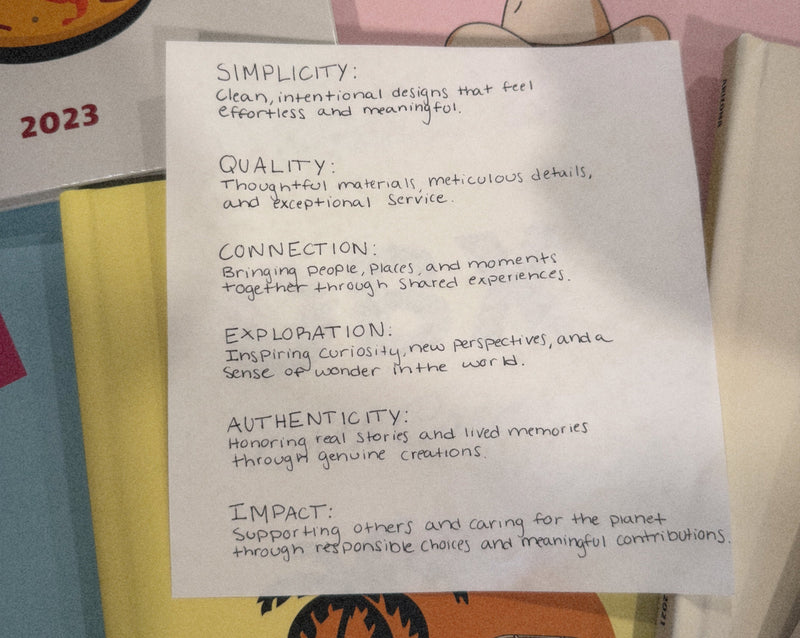 2023
SIMPLICITY:
Clean, intentional designs that feel
effortless and meaningful.
QUALITY:
Thoughtful materials, meticulous details,
and exceptional service.
CONNECTION:
Bringing people, places, and moments
together through shared experiences.
EXPLORATION:
Inspiring curiosity, new perspectives, and a
sense of wonder in the world.
AUTHENTICITY:
Honoring real stories and lived memories
through genuine creations.
IMPACT:
Supporting others and caring for the planet
through responsible choices and meaningful contributions.
ARIZONA
2021